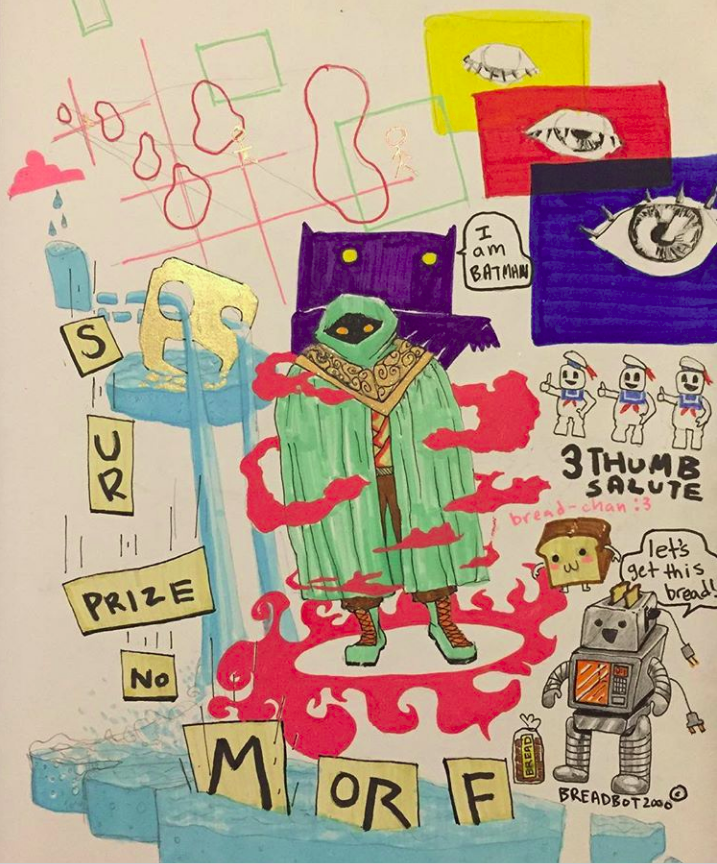 I
am
BATMAN
S
UR
PRIZE
NO
MORF
3 THUMB
SALUTE
bread-chan :3
let's
get this
bread!
BREAD
BREADBOT 2000 ©